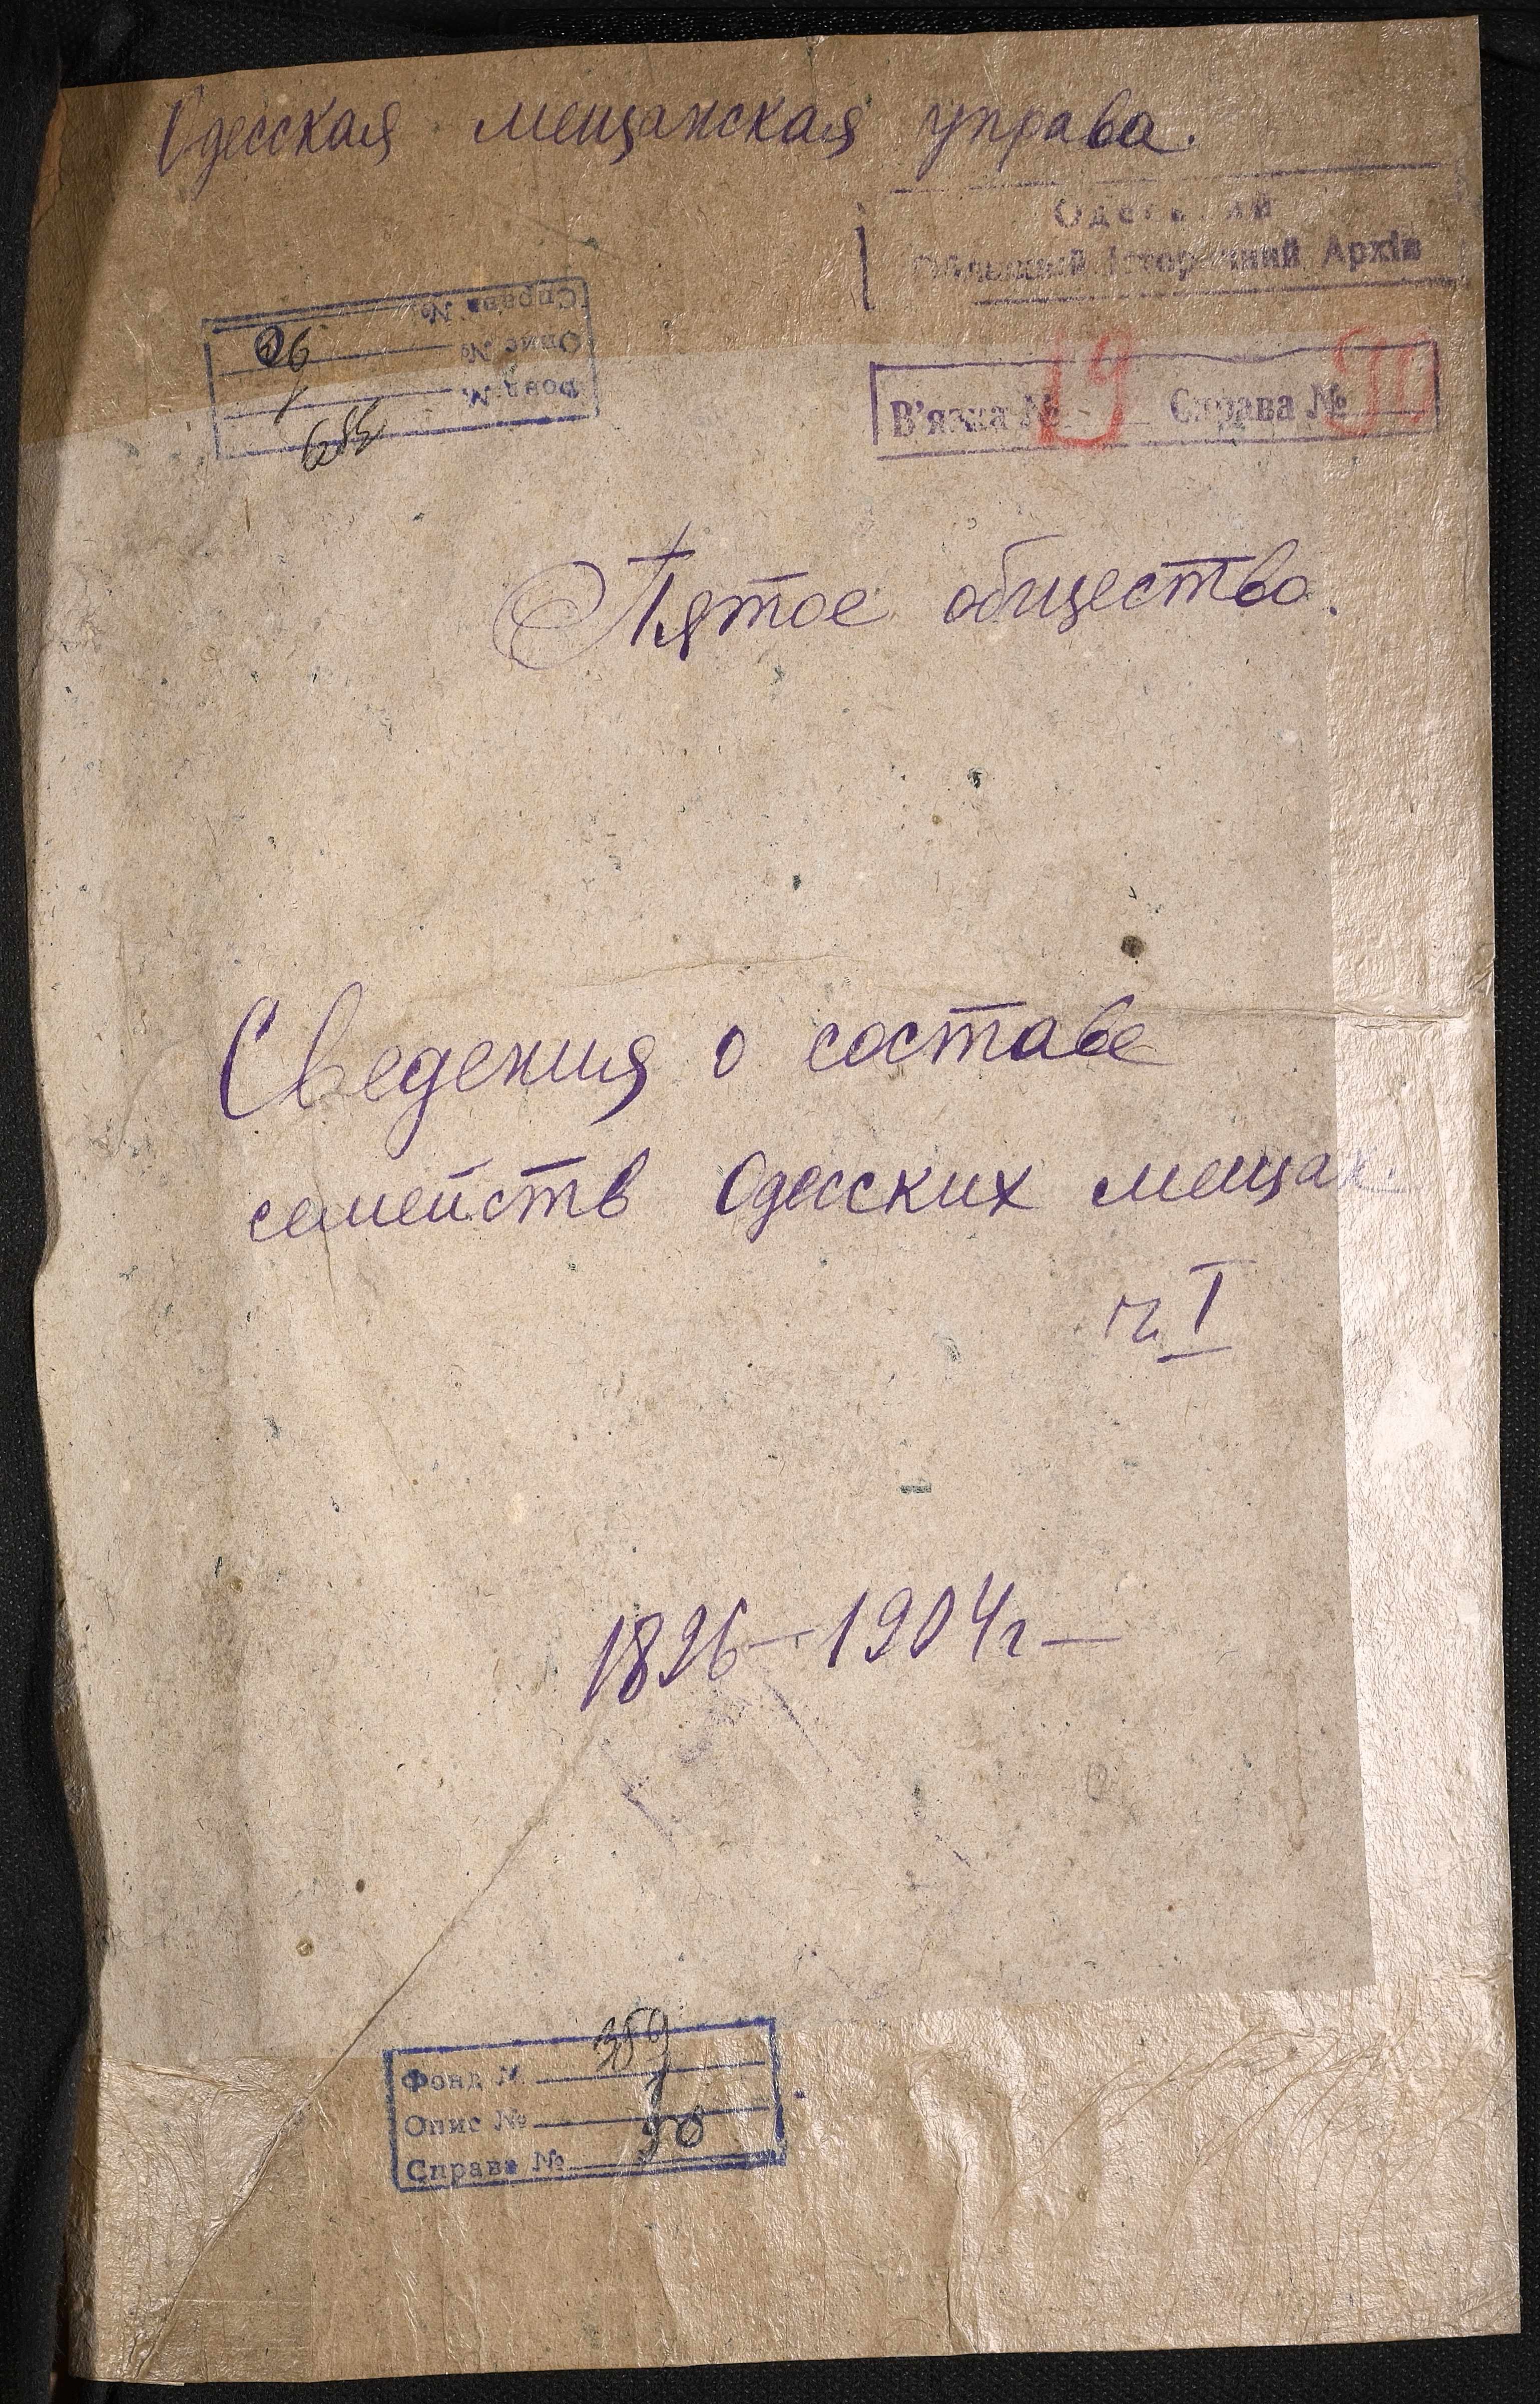 Одесская мещанская управа.
Одеський
Обласний Історичний Архів
Справа №
Опис №
Фонд №
В'язка № 19 Справа № 90
Пятое общество.
Сведения о составе
семейств Одесских мещан.
ч. I
1896 — 1904 г —
Фонд № 359
Опис № 1
Справа № 90